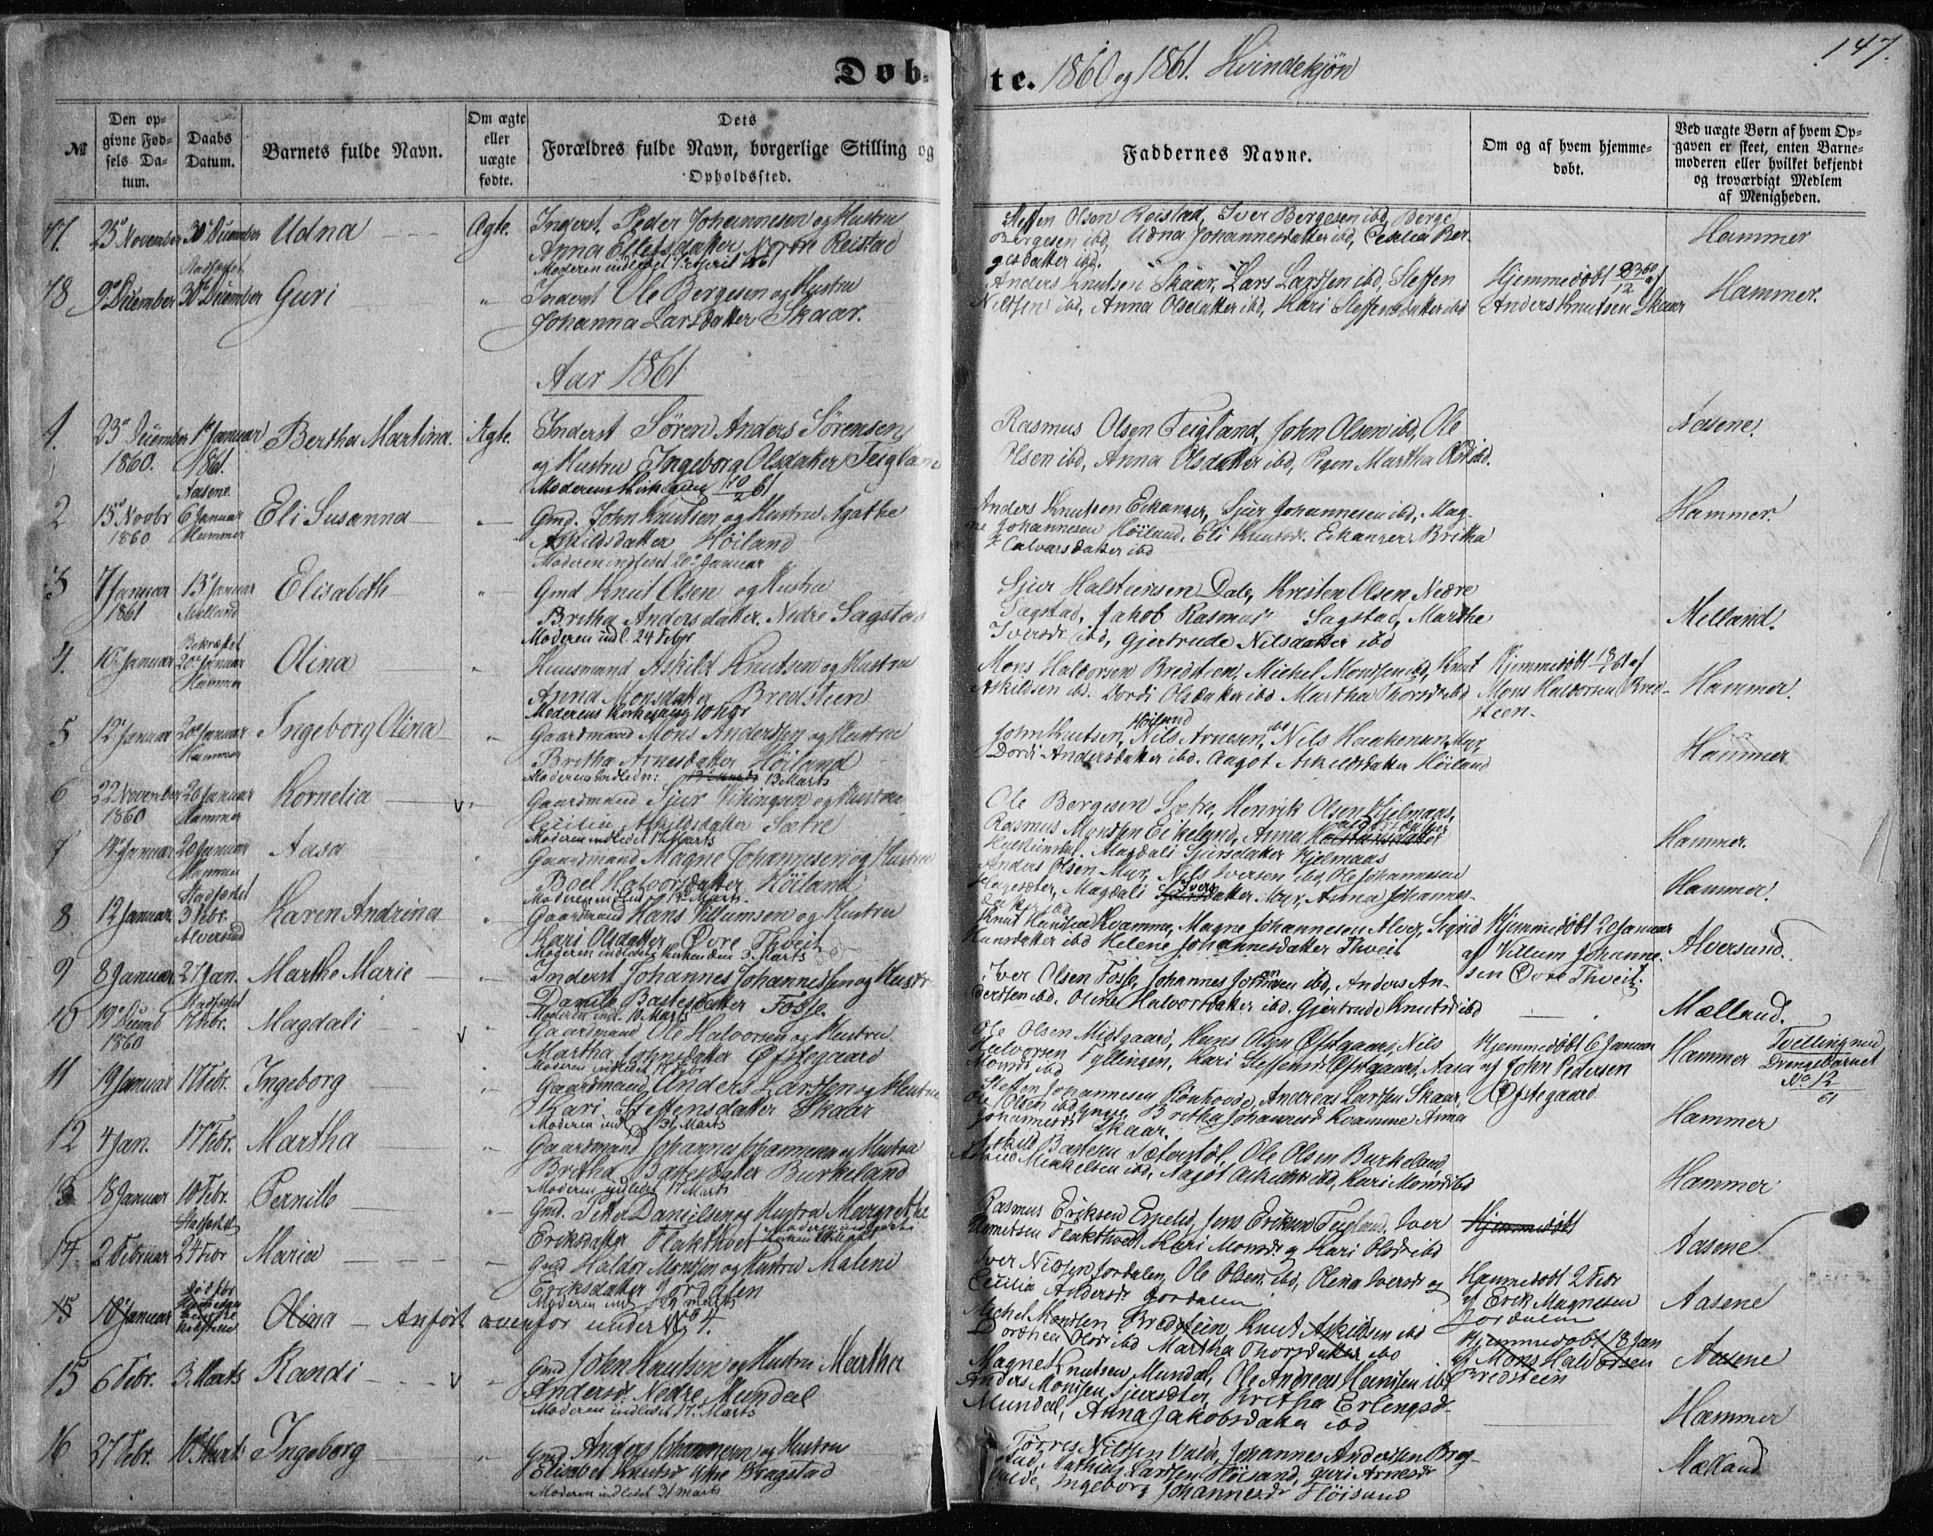 147.
Døbte. 1860 og 1861. Kvindekjøn
№
Den opgivne Fødsels Datum.
Daabs Datum.
Barnets fulde Navn.
Om ægte eller uægte fødte.
Dets Forældres fulde Navn, borgerlige Stilling og Opholdssted.
Faddernes Navne.
Om og af hvem hjemmedøbt.
Ved uægte Børn af hvem Opgaven er skeet, enten Barnemoderen eller hvilket bekjendt og troværdigt Medlem af Menigheden.
77. 25 November 30 December Udna Ægte. Inderst Peder Johannesen og Hustru
Anna Ellefsdatter Nedre Reistad
Moderen indledet 1 April 1861
Steffen Olsen Reistad, Iver Bergesen ibd, Berge
Bergesen ibd, Udna Johannesdatter ibd, Cecilia Bergesdatter ibd.
Hammer
78 9 December Stadfæstet 30 December Guri " Inderst Ole Bergesen og Hustru
Johanna Larsdatter Skaar.
Anders Knutsen Skaar, Lars Larssen ibd, Steffen
Nilssen ibd, Anna Olsdatter ibd, Kari Steffensdatter ibd
Hjemmedøbt af
Anders Knutsen Skaar
Hammer.
Aar 1861
1. 23 December 1860. 1 Januar 1861. Aasene Bertha Martina. Ægte. Inderst Søren Anders Sørensen
og Hustru Ingeborg Olsdatter Teigland
Moderens Kirkegang 10/2 61
Rasmus Olsen Teigland, John Olsen ibd, Ole
Olsen ibd, Anna Olsdatter ibd, Pigen Martha ibd.
Aasene.
2 15 Novbr 1860 6 Januar Hammer Eli Susanna " Gmd. John Knutsen og Hustru Agathe
Askildsdatter Höiland
Moderen indledet 20 Januar
Anders Knutsen Eikanger, Sjur Johannesen ibd, Magne
Johannesen Höiland, Eli Knutsdr Eikanger, Britha
Halvorsdatter ibd
Hammer.
3 7 Januar 1861 13 Januar Melland Elisabeth " Gmd Knut Olsen og Hustru
Britha Andersdatter, Nedre Sagstad
Moderen indl. 24 Febr
Sjur Halsteinsen Dale, Kristen Olsen Nedre
Sagstad, Jakob Rasmus Sagstad, Marthe
Iversdr ibd, Gjertrude Nilsdatter ibd
Melland.
4. 10 Januar Bekræftet 20 Januar Hammer Olina " Huusmand Askild Knutsen og Hustru
Anna Monsdatter Bredstien
Moderens Kirkegang 10 Febr
Mons Haldorsen Bredstien, Michel Monssen ibd, Knut
Askildsen ibd. Dordi Olsdatter ibd Martha Thorsdr ibd
Hjemmedøbt 13/1 61 af
Mons Haldorsen Bredsteen.
Hammer.
5 12 Januar 20 Januar Hammer Ingeborg Olina " Gaardmand Mons Anderssen og Hustru
Britha Arnesdatter Höiland
Moderens Indledn: 13 Marts
John Knutsen, Höiland Nils Arnesen, ibd Nils Haakensen Myr,
Dordi Andersdatter ibd. Aagot Askildsdatter Höiland
Hammer
6 22 November 1860 20 Januar Hammer Kornelia " Gaardmand Sjur Vikingsen og Hustru
Cecilia Askildsdatter Sætre
Moderen indledet 17 Marts
Ole Bergesen Sætre, Henrik Olsen Hjelmaas,
Rasmus Monssen Eikeland, Anna
Magdali Sjursdatter Hjelmaas
Hammer.
7 14 Januar 20 Januar Hammer Aasa " Gaardmand Magne Johannesen og Hustru
Boel Halvorsdatter Höiland
Moderen indledt Marts
Anders Olsen Myr, Nils Iversen ibd, Ole Johannesen
Hagesæter, Magdali Iversdatter Myr, Anna Johannesdatter ibd
Hammer.
8 12 Januar Stadfæstet 3 Febr. Alversund Karen Andrina " Gaardmand Hans Villumsen og Hustru
Kari Olsdatter Øvre Thveit
Moderen indledet i Kirken den 3 Marts
Knut Hansen Kvamme, Magne Johannesen Alver, Sigrid
Hansdatter ibd Helene Johannesdatter Thveit
Hjemmedøbt 20 Januar
af Villum Johannesen Øvre Thveit.
Alversund.
9 8 Januar 27 Jan. Marthe Marie " Inderst Johannes Johannessen og Hustr
Danile Bastesdatter Fosse
Moderen indl. 10 Marts
Iver Olsen Fosse, Johannes Johansen ibd, Anders Anderssen ibd. Oline Halvorsdatter ibd. Gjertrude Knutsdr ibd
Mælland.
10 19 Decemb 1860 Stadfæstet 17 Febr. Magdali " Gaardmand Ole Halvorsen og Hustru
Martha Johnsdatter Øfstegaard
Moderen indledet 17 Febr
Ole Olsen Midtgaard, Hans Olsen Øfstgaard, Nils
Halvorsen Fyllingen, Kari Steffensdr Øfstgaard, Aasa
Monsdr ibd
Hjemmedøbt 6 Januar
af John Pedersen
Øfstegaard
Hammer Tvilling med
Drengebarnet
No 12/61
11 19 Januar 17 Febr. Ingeborg " Gaardmand Anders Larssen og Hustru
Kari Steffensdatter Skaar
Moderen indl 31 Marts
Steffen Johannesen Rönhovde, Andreas Larssen Skaar,
Ole Olsen ibd, Britha Johannesdr Kvamme Anna
Johannesdr Skaar.
Hammer
12 4 Jan. 17 Febr. Martha " Gaardmand Johannes Johannesen og Hustru
Britha Bastesdatter Burkeland
Moderen indledet 17 Marts
Askild Bastesen Sæterstöl, Ole Olsen Burkeland,
Mikkelsen ibd, Aagot ibd, Kari Monsdr ibd
Hammer
13 18 Januar 10 Febr. Stadfæstet Pernille " Gmd. Peder Danielsen og Hustru Margrethe
Eriksdatter Flaktveit
Rasmus Eriksen Espelid, Jens Eriksen Teigland, Iver
Flaktveit Kari Monsdr og Kari Olsdr ibd
Hjemmedøbt
Aasene
14 2 Februar 24 Febr Maria " Gmd Haldor Monssen og Hustru Malene
Eriksdatter Jordalen
Moderen ind 29 marts
Iver Nilssen Jordalen, Ole Olsen ibd, Olena Iversdr og
Cecilia Andersdr Jordalen
Hammedøbt 2 Febr
af Erik Magnesen
Jordalen
Aasene
15 10 Januar Olina - Anført ovenfor under No 4.
Michel Monssen Bredstein, Knut Askildsen ibd
Dorthea Olsdr ibd Martha Thorsdatter ibd
Hjemmedøbt 13 Jan
af Mons Haldorsen
Bredstein
Aasene
15 6 Febr. 3 Marts Randi " Gmd John Knutsen og Hustru Martha
Andersdr Nedre Mundal
Moderen indledet 17 Marts
Magne Knutsen Mundal, Ole Andreas Hanssen ibd
Anders Monssen Sjursæter, Britha Erlingsdr
Mundal, Anna Jakobsdatter ibd
Hammer
16 27 Febr. 10 Marts Ingeborg " Gmd. Anders Johannesen og Hustru
Elisabet Knutsdr Ytre Bragstad
Moderen indledet 31 marts
Torres Nilssen Vabö, Johannes Anderssen Bragstad, Mathias Larssen Flöisand, Guri Arnesdr
Ingeborg Johannesdr Flöisand
Mælland